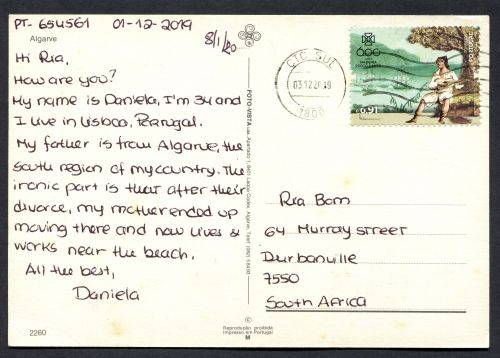 PT-654561 01-12-2019
8/1/20
Algarve
Hi Ria,
How are you?
My name is Daniela, I'm 34 and
I live in Lisboa, Portugal.
My father is from Algarve, the
South region of my country. The
ironic part is that after their
divorce, my mother ended up
moving there and now lives &
works near the beach.
All the best,
Daniela
2260
FOTO-VISTA
Reprodução proibida
Impresso em Portugal
M
CTC SUL
03.12.2019
1900
600
PORTUGAL
0,91
Ria Bom
64 Murray street
Durbanville
7550
South Africa